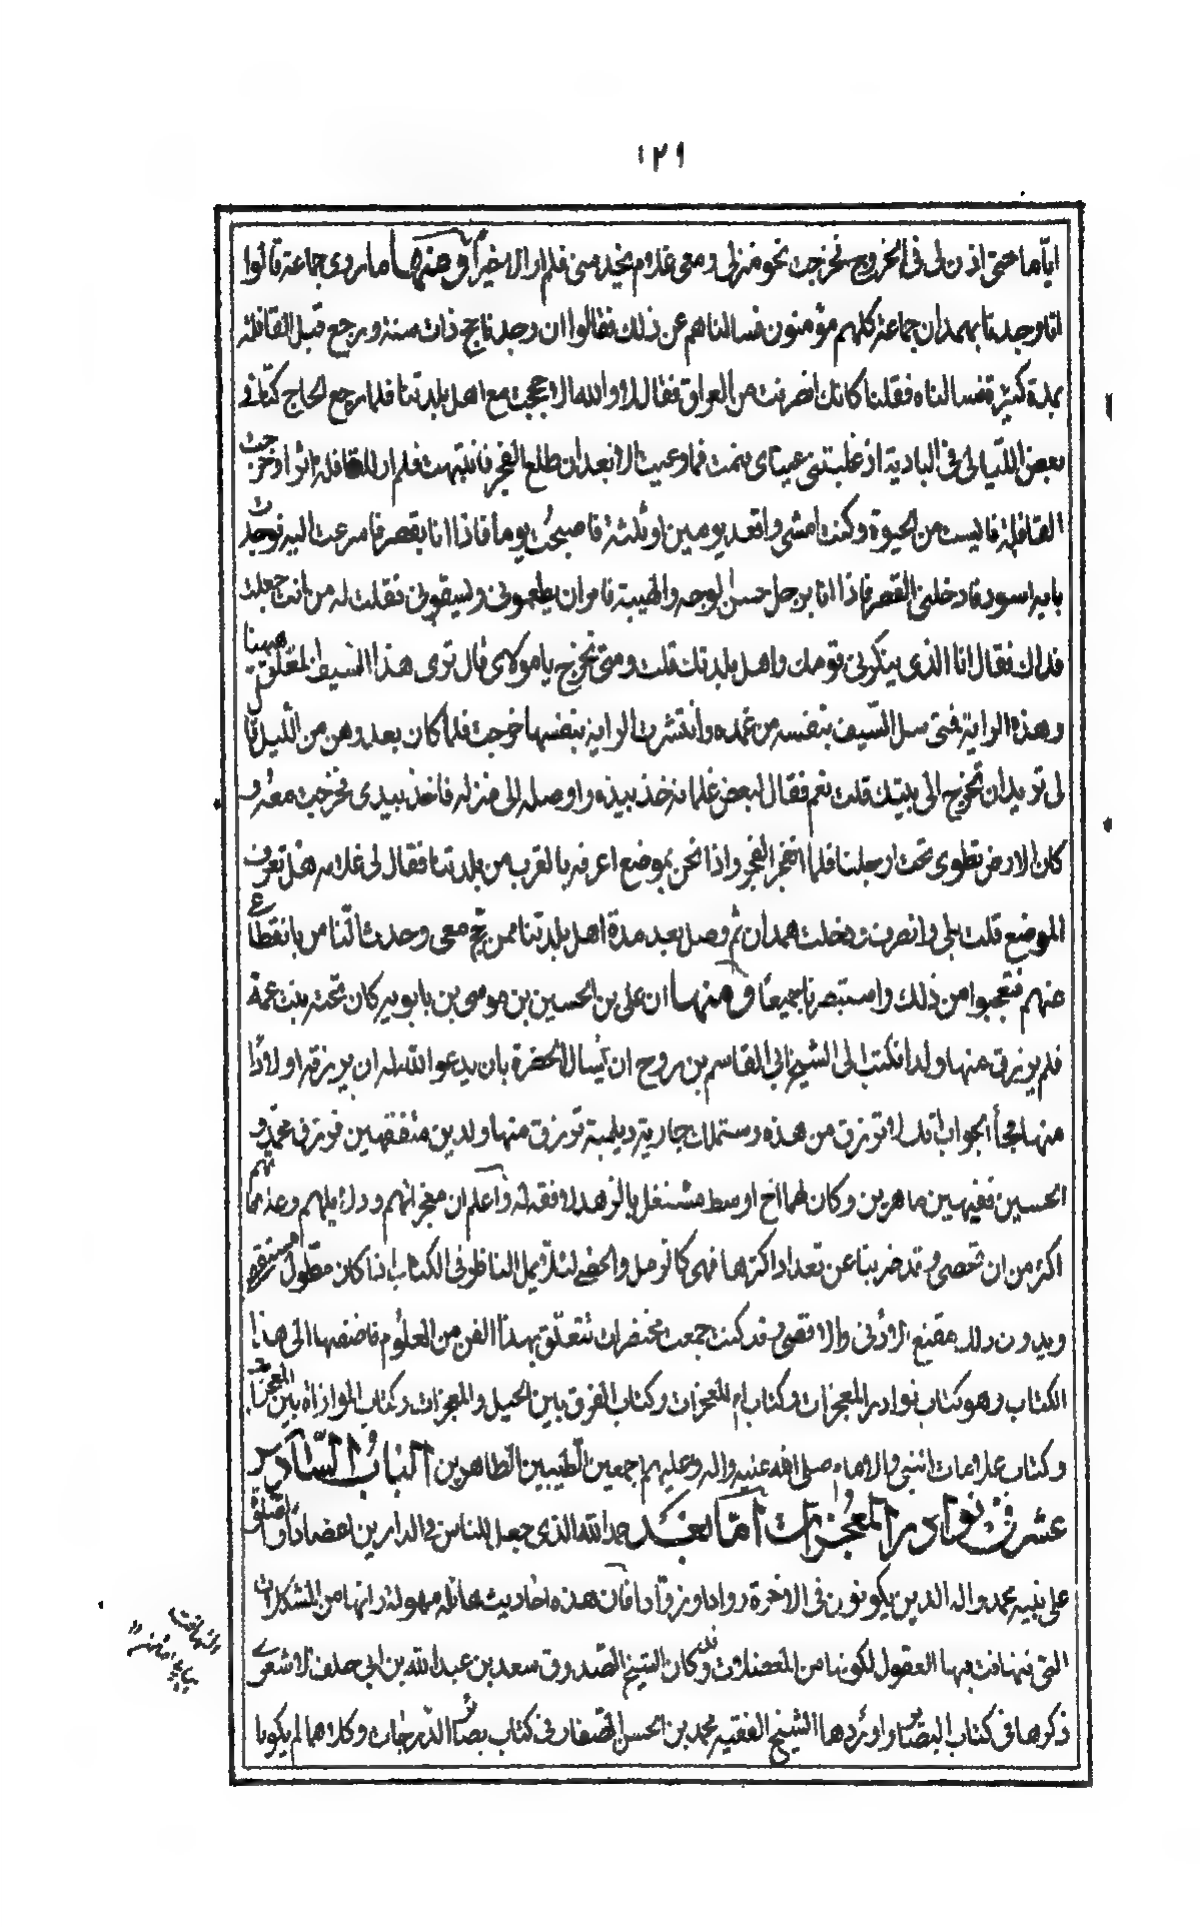 ١٢٩
ايّاما حتى اذن لى فى الخروج فخرجت نحو منزلى ومعى غلام يخدمنى فلم ار الا خيرا ومنها ما روى جماعة قالوا
انا وجدنا بهمدان جماعة كلهم مؤمنون فسالناهم عن ذلك فقالوا ان جدنا حج ذات سنة ورجع قبل القافلة
بمدة كثيرة فسالناه فقلنا كانك انصرفت من العراق فقال لا والله الا حججت مع اهل بلدتنا فلما رجع الحاج كنا فى
بعض الليالى فى البادية اذ غلبتنى عيناى فنمت فما وعيت الا بعد ان طلع الفجر فانتبهت فلم ار للقافلة اثرا وخرجت
القافلة فايست من الحيوة وكنت امشى واقعد يومين او ثلثة فاصبحت يوما فاذا انا بقصر فاسرعت اليه فوجدت
بابه اسود فادخلنى القصر فاذا انا برجل حسن الوجه والهيبة فامر ان يطعمونى ويسقونى فقلت له من انت جعلت
فداك فقال انا الذى ينكرنى قومك واهل بلدتك قلت ومتى تخرج يا مولاى قال ترى هذا السيف المعلق ههنا
وهذه الراية فمتى سل السيف بنفسه من غمده وانتشرت الراية بنفسها خرجت فلما كان بعد وهن من الليل قال
لى تريد ان تخرج الى بيتك قلت نعم فقال لبعض غلمانه خذ بيده واوصله الى منزله فاخذ بيدى فخرجت معه و
كان الارض تطوى تحت ارجلنا فلما انفجر الفجر واذا نحن بموضع اعرفه بالقرب من بلدتنا فقال لى غلامه هل تعرف
الموضع قلت بلى وانصرف ودخلت همدان ثم وصل بعد مدة اهل بلدتنا ممن حج معى وحدث الناس بانقطاعى
منهم فتعجبوا من ذلك واستبصرنا جميعا ومنها ان على بن الحسين بن موسى بن بابويه كان تحته بنت عمه
فلم يرزق منها ولدا فكتب الى الشيخ ابى القاسم بن روح ان يسال الحضرة بان يدعو الله له ان يرزقه اولادا
منها فجأ الجواب انك لا ترزق من هذه وستملك جارية ديلمية ترزق منها ولدين متفقهين فرزق محمد و
الحسين فقيهين ماهرين وكان لهما اخ اوسط مشتغل بالزهد لا فقه له واعلم ان معجزاتهم ودلايلهم وعلاماتهم
اكثر من ان تحصى وقد ضربنا عن تعداد اكثرها فهى كالرمل والحصى لئلا يمل الناظر فى الكتاب اذا كان مطول
وبدون ذلك مقنع الادنى والاقصى وقد كنت جمعت مختصرات تتعلق بهذا الفن من العلوم فاضفتها الى هذا
الكتاب وهو كتاب نوادر المعجزات وكتاب ام المعجزات وكتاب الفرق بين الحيل والمعجزات وكتاب الموازاة بين المعجزات
وكتاب علامات النبى والامام صلى الله عليه واله وعليهم اجمعين الطيبين الطاهرين الباب السادس
عشر فى نوادر المعجزات اما بعد حمد الله الذى جعل للناس فى الدارين اعضادا والصلوة
على نبيه محمد واله الذين يكونون فى الاخرة روادا ورزقا فان هذه احاديث هائلة مهولة رايتها من المشكلات
التى تتهافت فيها العقول لكونها من المعضلات وكان الشيخ الصدوق سعد بن عبد الله بن ابى خلف الاشعرى
ذكرها فى كتاب البصائر واوردها الشيخ الفقيه محمد بن الحسن الصفار فى كتاب بصائر الدرجات وكلاهما لم يكونا